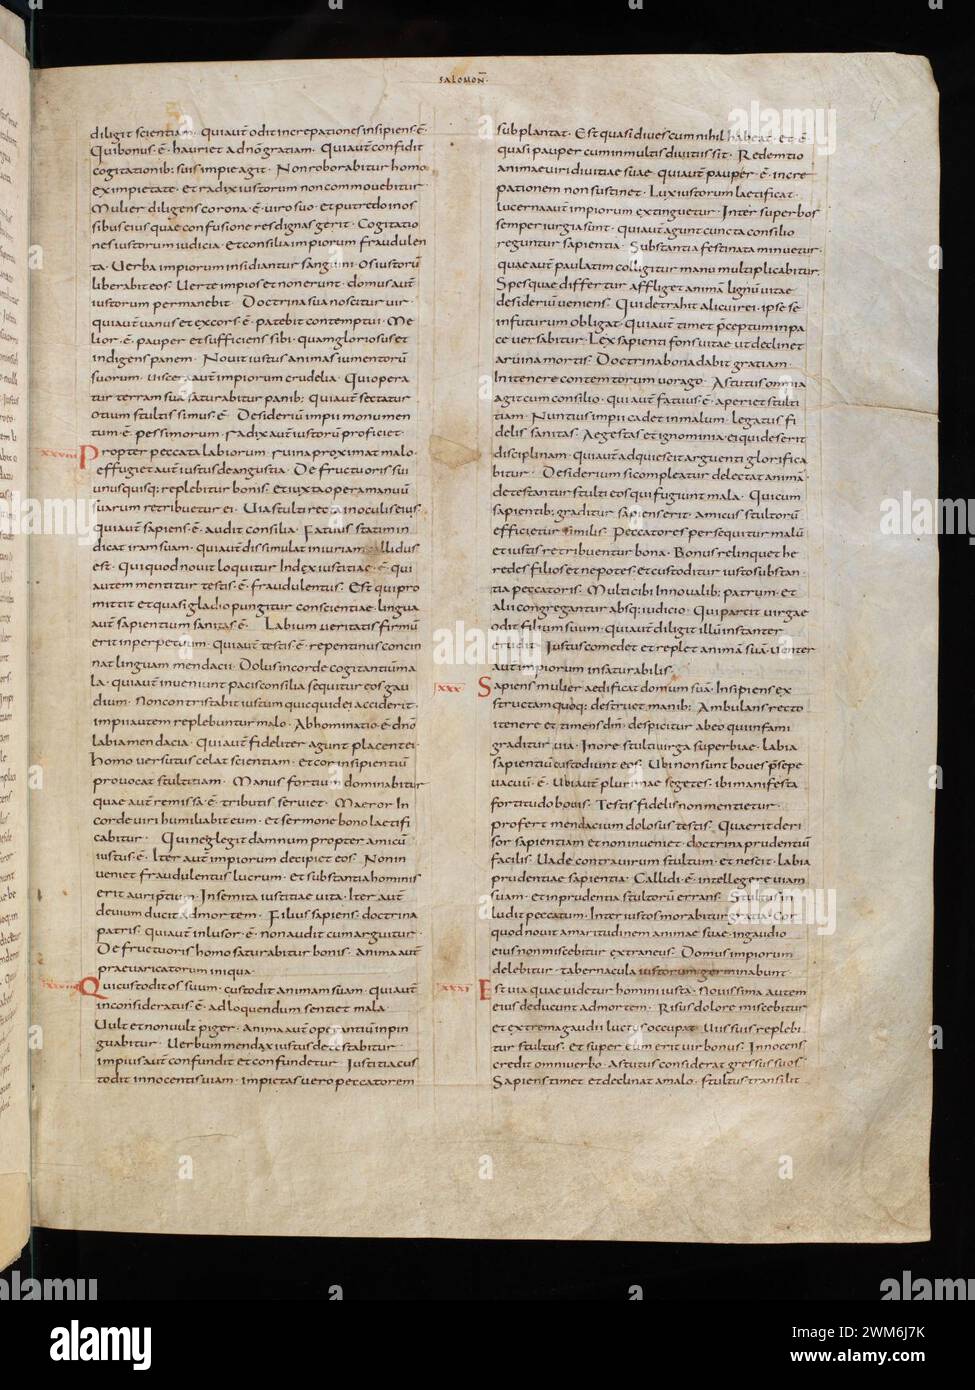 SALOMOÑ·
diligit scientiam· qui aut̄ odit increpationes insipiens ·ē·
Qui bonus ·ē· hauriet a dn̄o gratiam· Qui aut̄ confidit
cogitationib; suis impie agit· Non roborabitur homo
ex impietate· et radix iustorum non commovebitur
Mulier diligens corona ·ē· viro suo· et putredo in os
sibus eius quae confusione res dignas gerit· Cogitatio
nes iustorum iudicia· et consilia impiorum fraudulen
ta· Verba impiorum insidiantur sanguini· Os iustorū
liberabit eos· Verte impios et non erunt· domus aut̄
iustorum permanebit· Doctrina sua noscitur vir·
qui aut̄ vanus et excors ·ē· patebit contemptui· Me
lior ·ē· pauper et sufficiens sibi· quam gloriosus et
indigens panem· Novit iustus animas iumentorū
suorum· viscera aut̄ impiorum crudelia· Qui opera
tur terram suā saturabitur panib; Qui aut̄ sectatur
otium stultissimus ·ē· Desiderium impii monumen
tum ·ē· pessimorum· radix aut̄ iustorū proficiet·
xxviii Propter peccata labiorum· ruina proximat malo·
effugiet aut̄ iustus de angustia· De fructu oris sui
unusquisq; replebitur bonis· et iuxta opera manuū
suarum retribuetur ei· Via stulti recta in oculis eius·
qui aut̄ sapiens ·ē· audit consilia· Fatuus statim in
dicat iram suam· qui aut̄ dissimulat iniuriam callidus
est· Qui quod novit loquitur index iustitiae ·ē· qui
autem mentitur testis ·ē· fraudulentus· Est qui pro
mittit et quasi gladio pungitur conscientiae· lingua
aut̄ sapientium sanitas ·ē· Labium veritatis firmū
erit in perpetuum· qui aut̄ testis ·ē· repentinus concin
nat linguam mendacii· Dolus in corde cogitantiū ma
la· qui aut̄ ineunt pacis consilia sequitur eos gau
dium· Non contristabit iustum quicquid ei acciderit·
impii autem replebuntur malo· Abhominatio ·ē· dn̄o
labia mendacia· Qui aut̄ fideliter agunt placent ei·
Homo versutus celat scientiam· et cor insipientiū
provocat stultitiam· Manus fortium dominabitur
quae aut̄ remissa ·ē· tributis serviet· Maeror in
corde viri humiliabit eum· et sermone bono laetifi
cabitur· Qui neglegit damnum propter amicū
iustus ·ē· Iter aut̄ impiorum decipiet eos· Non in
veniet fraudulentus lucrum· et substantia hominis
erit auri p̄tium· In semita iustitiae vita· Iter aut̄
devium ducit ad mortem· Filius sapiens· doctrina
patris· qui aut̄ inlusor ·ē· non audit cum arguitur·
De fructu oris homo saturabitur bonis· Anima aut̄
praevaricatorum iniqua·
xxviiii Qui custodit os suum· custodit animam suam· qui aut̄
inconsideratus ·ē· ad loquendum sentiet mala·
Vult et non vult piger· Anima aut̄ operantium in pin
guabitur· Verbum mendax iustus detestabitur·
impius aut̄ confundit et confundetur· Iustitia cus
todit innocentis viam· impietas vero peccatorem
subplantat· Est quasi dives cum nihil habeat· et ·ē·
quasi pauper cum in multis divitiis sit· Redemtio
animae viri divitiae suae· qui aut̄ pauper ·ē· incre
pationem non sustinet· Lux iustorum laetificat·
lucerna aut̄ impiorum extinguetur· Inter superbos
semper iurgia sunt· qui aut̄ agunt cuncta consilio
reguntur sapientia· Substantia festinata minuetur·
quae aut̄ paulatim colligitur manu multiplicabitur·
Spes quae differtur affliget animā· lignū vitae
desiderium veniens· Qui detrahit alicui rei· ipse se
in futurum obligat· Qui aut̄ timet p̄ceptum in pa
ce versabitur· Lex sapienti fons vitae ut declinet
a ruina mortis· Doctrina bona dabit gratiam·
In itenere contemtorum vorago· Astutus omnia
agit cum consilio· qui aut̄ fatuus ·ē· aperiet stulti
tiam· Nuntius impii cadet in malum· legatus fi
delis sanitas· Aegestas et ignominia ei qui deserit
disciplinam· qui aut̄ adquiescit arguenti glorifica
bitur· Desiderium si compleatur delectat animā·
detestantur stulti eos qui fugiunt mala· Qui cum
sapientib; graditur sapiens erit· amicus stultorū
efficietur similis· Peccatores persequitur malū
et iustis retribuentur bona· Bonus relinquet he
redes filios et nepotes· et custoditur iusto substan
tia peccatoris· Multi cibi in novalib; patrum· et
alii congregantur absq; iudicio· Qui parcit virgae
odit filium suum· Qui aut̄ diligit illū instanter
erudit· Iustus comedet et replet animā suā· venter
aut̄ impiorum insaturabilis·
xxx Sapiens mulier aedificat domum suā· Insipiens ex
structam quoq; destruet manib; Ambulans recto
itenere et timens dm̄· despicitur ab eo qui infami
graditur via· In ore stulti virga superbiae· labia
sapientiū custodiunt eos· Ubi non sunt boves p̄sepe
vacuū ·ē· Ubi aut̄ plurimae segetes· ibi manifesta
fortitudo bovis· Testis fidelis non mentietur·
profert mendacium dolosus testis· Quaerit deri
sor sapientiam et non inveniet· doctrina prudentiū
facilis· Vade contra virum stultum· et nescit· labia
prudentiae sapientia· Callidi ·ē· intellegere viam
suam· et inprudentia stultorū errans· Stultus in
ludit peccatum· Inter iustos morabitur gratia· Cor
quod novit amaritudinem animae suae· in gaudio
eius non miscebitur extraneus· Domus impiorum
delebitur· tabernacula iustorum germinabunt·
xxxi Est via quae videtur homini iusta· Novissima autem
eius deducunt ad mortem· Risus dolore miscebitur
et extrema gaudii luctus occupat· Viis suis replebi
tur stultus· et super eum erit vir bonus· Innocens
credit omni verbo· Astutus considerat gressus suos·
Sapiens timet et declinat a malo· stultus transilit
alamy
Image ID: 2WM6J7K
www.alamy.com